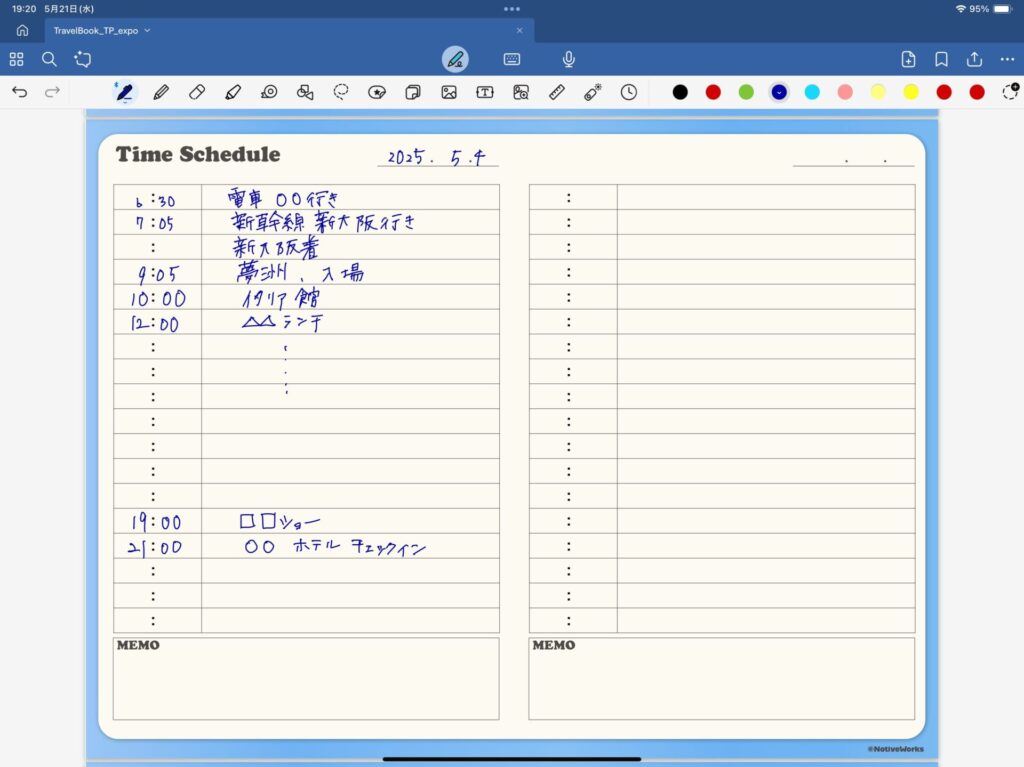 19:20 5月21日(水)
95%
TravelBook_TP_expo
Time Schedule
2025. 5.4
. .
6:30 電車 〇〇行き
7:05 新幹線 新大阪行き
: 新大阪着
9:05 夢洲、入場
10:00 イタリア館
12:00 △△ランチ
:
:
:
:
:
:
:
19:00 □□ショー
21:00 〇〇 ホテル チェックイン
:
:
:
MEMO
:
:
:
:
:
:
:
:
:
:
:
:
:
:
:
:
:
:
MEMO
©NotiveWorks